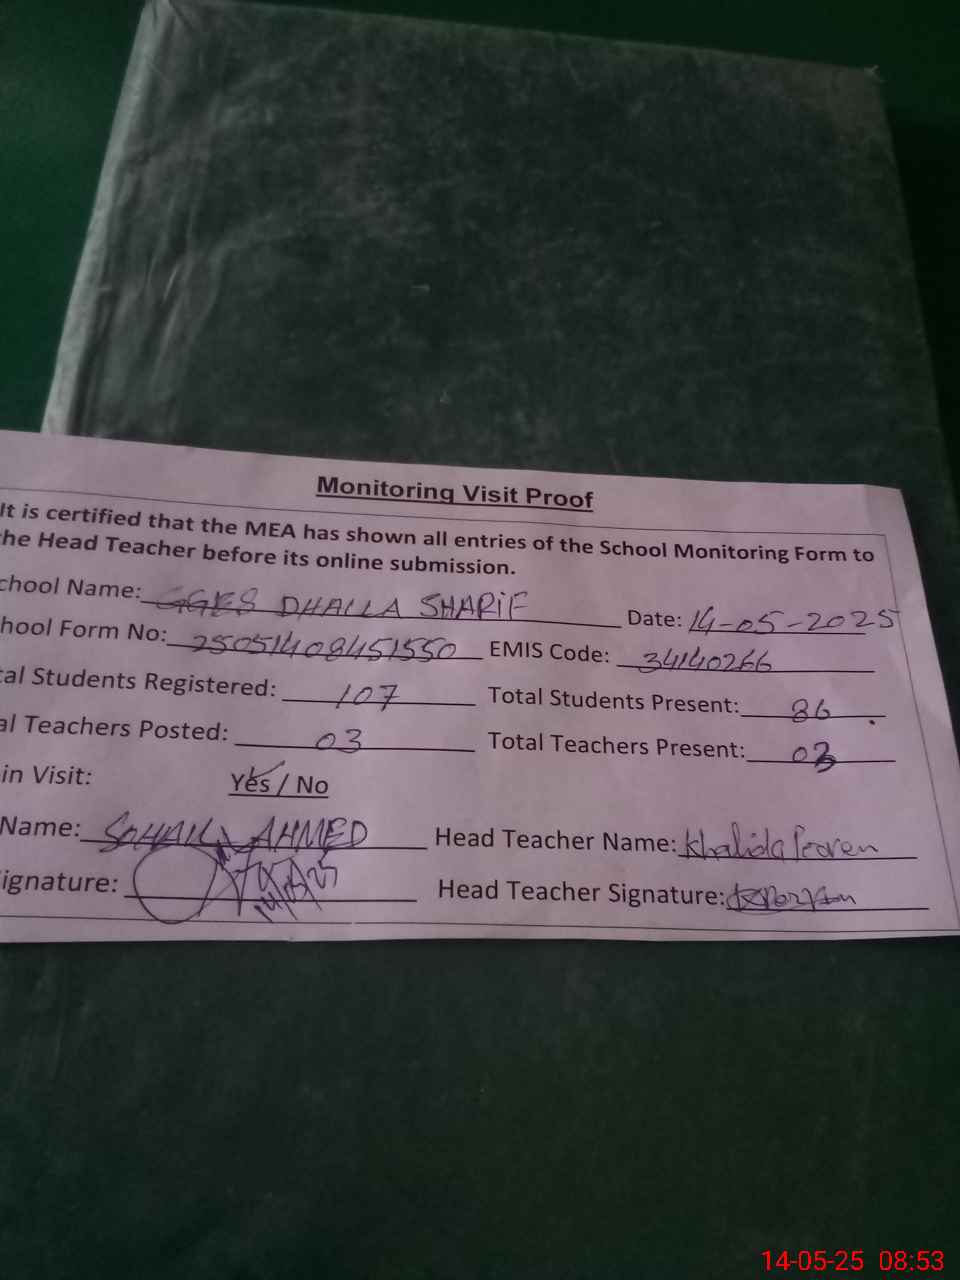 Monitoring Visit Proof
It is certified that the MEA has shown all entries of the School Monitoring Form to
he Head Teacher before its online submission.
chool Name: GGES DHALLA SHARIF Date: 14-05-2025
hool Form No: 25051408451550 EMIS Code: 34140266
al Students Registered: 107 Total Students Present: 86
al Teachers Posted: 03 Total Teachers Present: 03
in Visit: Yes / No
Name: SOHAIL AHMED Head Teacher Name: Khalida
ignature: 14/05/25 Head Teacher Signature:
14-05-25 08:53